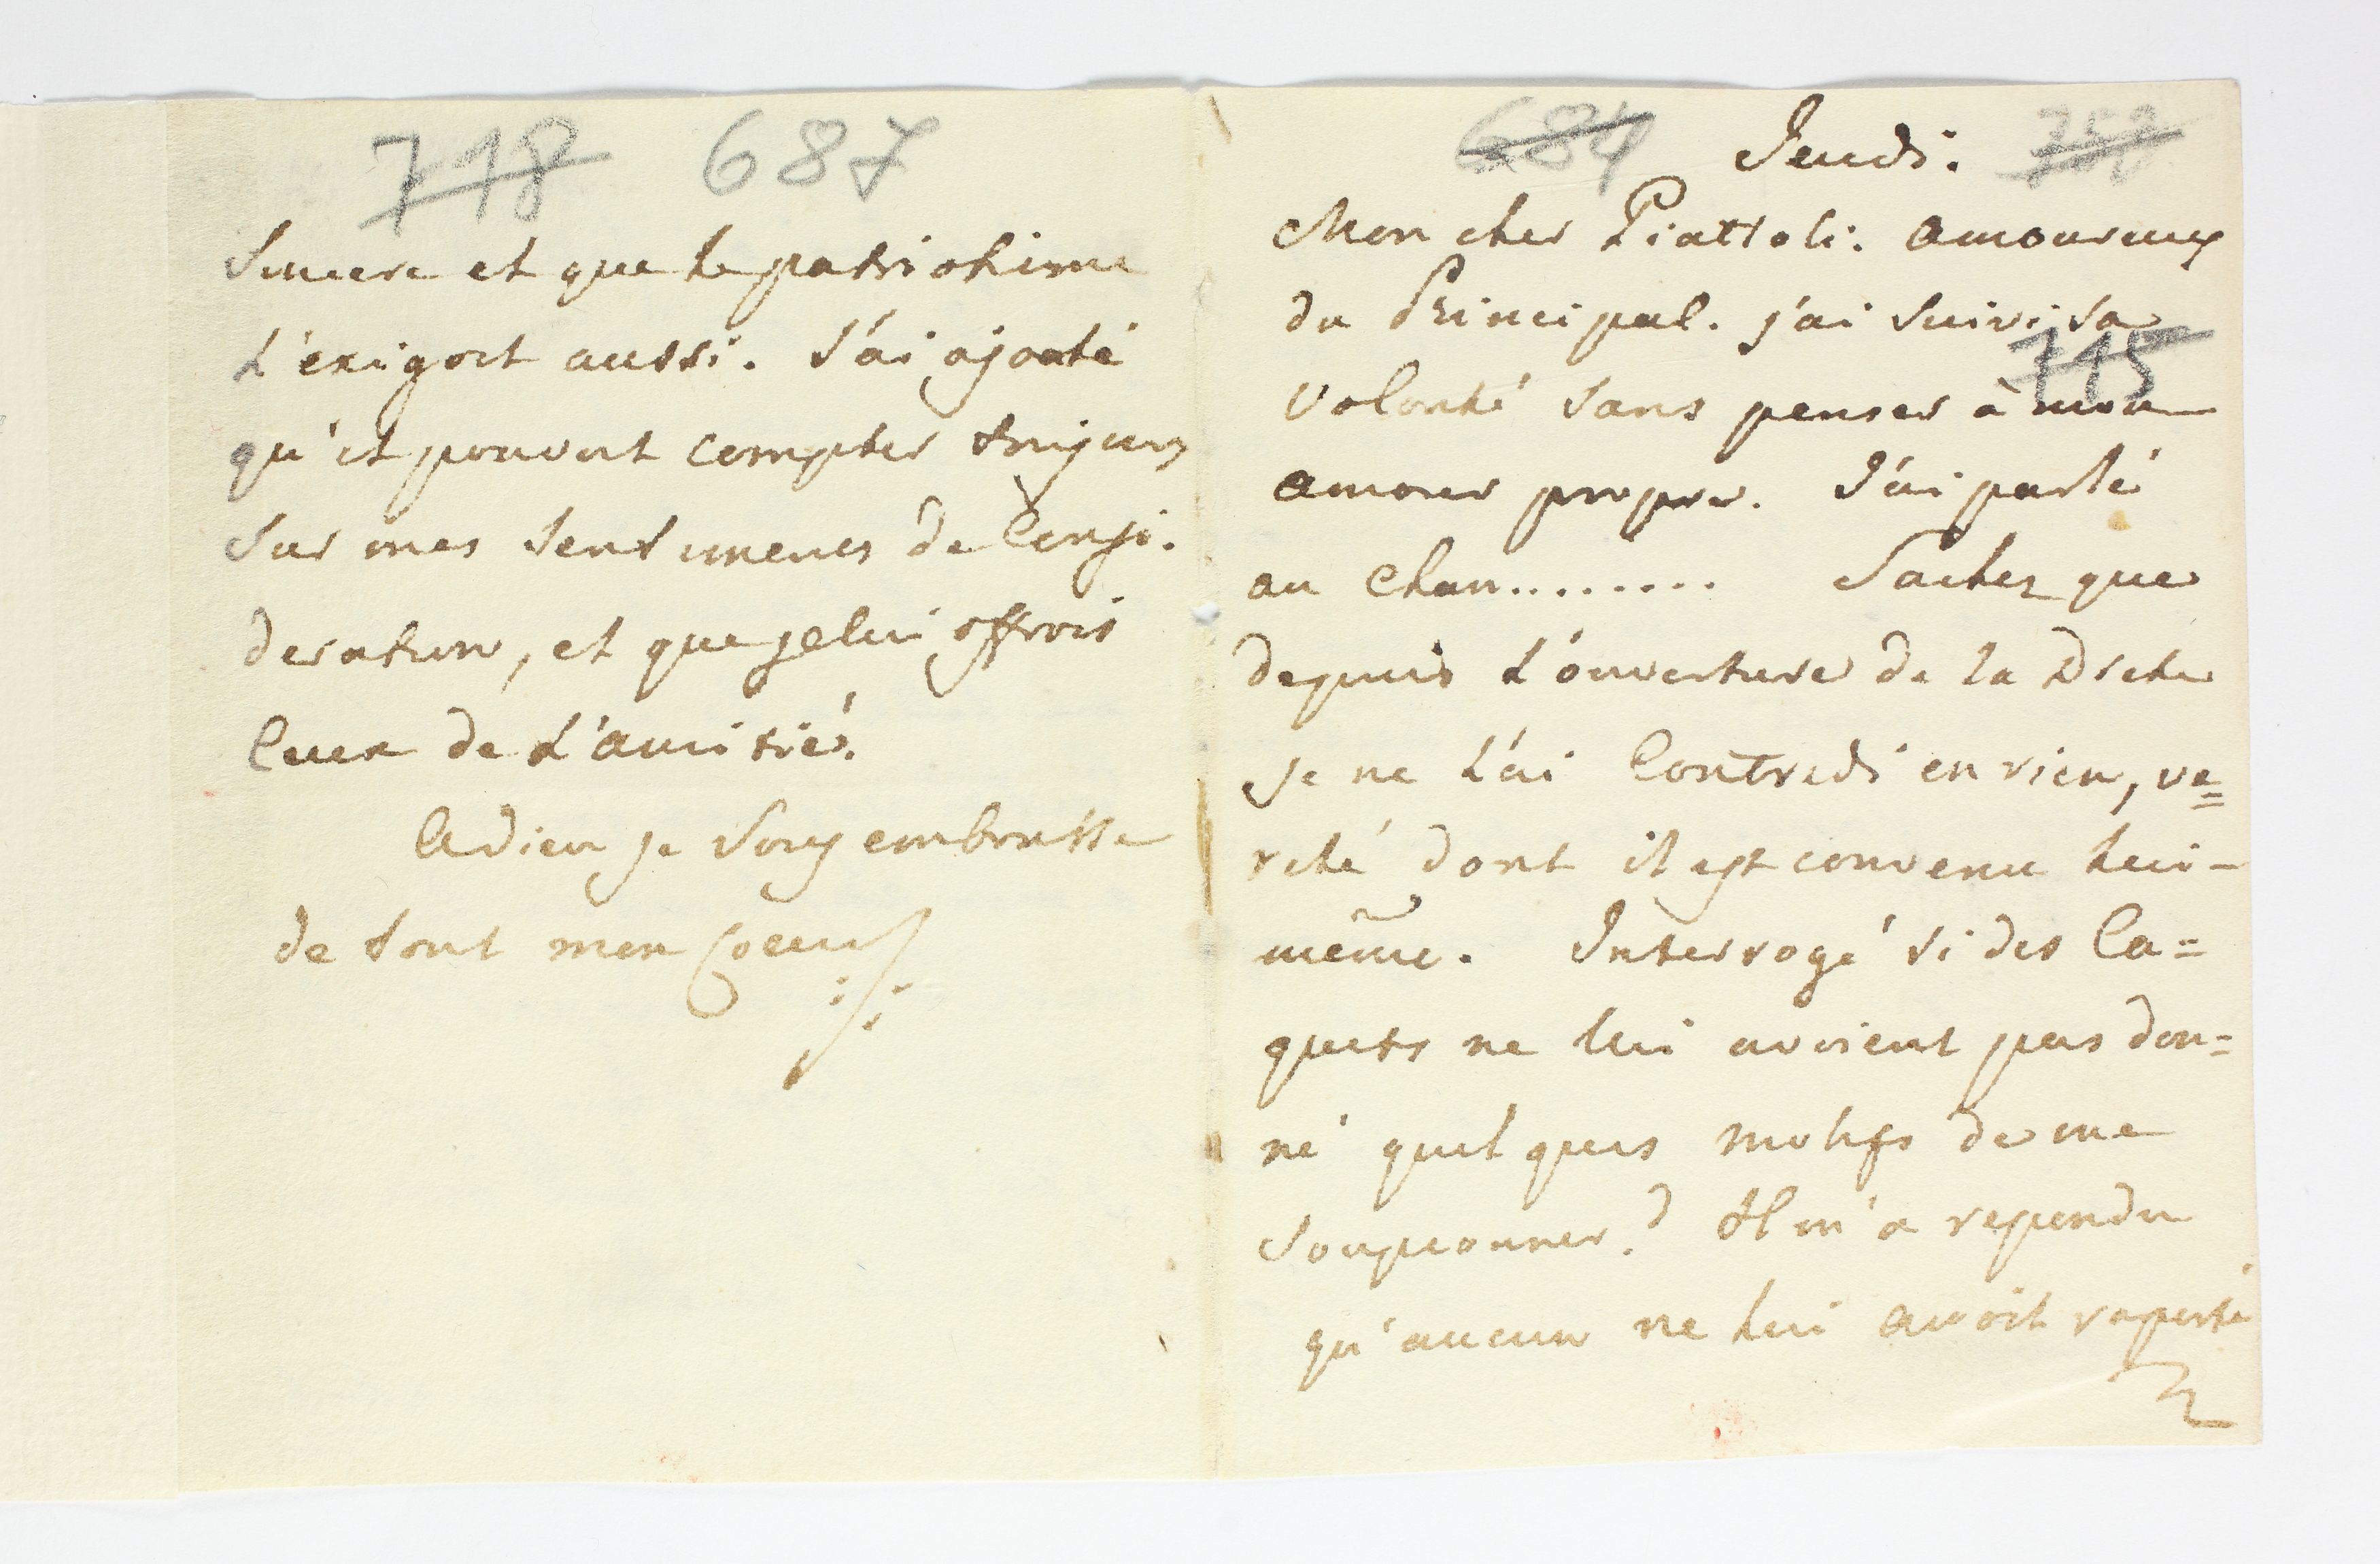 718 687
Sincere et que le patriotisme
l'exigoit aussi. J'ai ajouté
qu'il pouvoit compter toujours
sur mes sentimens de Consi.
deration, et que je lui offrois
Ceux de l'amitié.
Adieu je vous embrasse
de tout mon Coeur
684 Jeudi.
Mon cher Piattoli. Amoureux
du Principal. j'ai suivi sa
715
volonté sans penser à mon
amour propre. J'ai parlé
au Chan........ Sachez que
depuis l'ouverture de la Diete
Je ne l'ai Contredi en rien, ve=
rité dont il est convenu lui-
même. Interrogé si des Ca=
quets ne lui avoient pas don=
né quelques motifs de me
soupconner? Il m'a repondu
qu'aucun ne lui avoit raporté